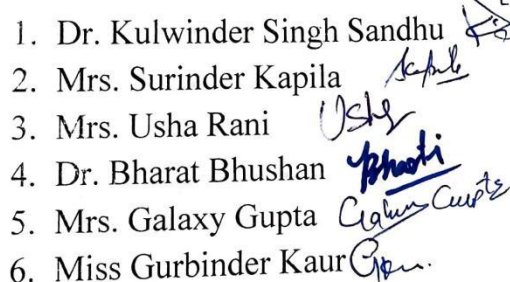 1. Dr. Kulwinder Singh Sandhu
2. Mrs. Surinder Kapila
3. Mrs. Usha Rani Usha
4. Dr. Bharat Bhushan
5. Mrs. Galaxy Gupta Galaxy Gupta
6. Miss Gurbinder Kaur